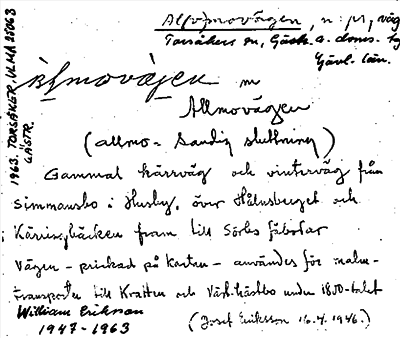 Al(l)movägen, n. pr, väg
Torsåkers sn, Gästr. a. doms. tg
Gävl. län.
1963. TORSÅKER. ULMA 25063
GÄSTR.
m
Allmovägen
(allmo- Sandig sluttning)
Gammal kärrväg och vinterväg från
Simmansbo i Husby, över Hålnsberget och
Kärringbäcken fram till Sörbo fäbodar
Vägen - prickad på kartan - användes för malm-
transporter till Kratten och Väst. hästbo under 1800-talet
William Eriksson
1947-1963
(Josef Eriksson 16.4.1946.)